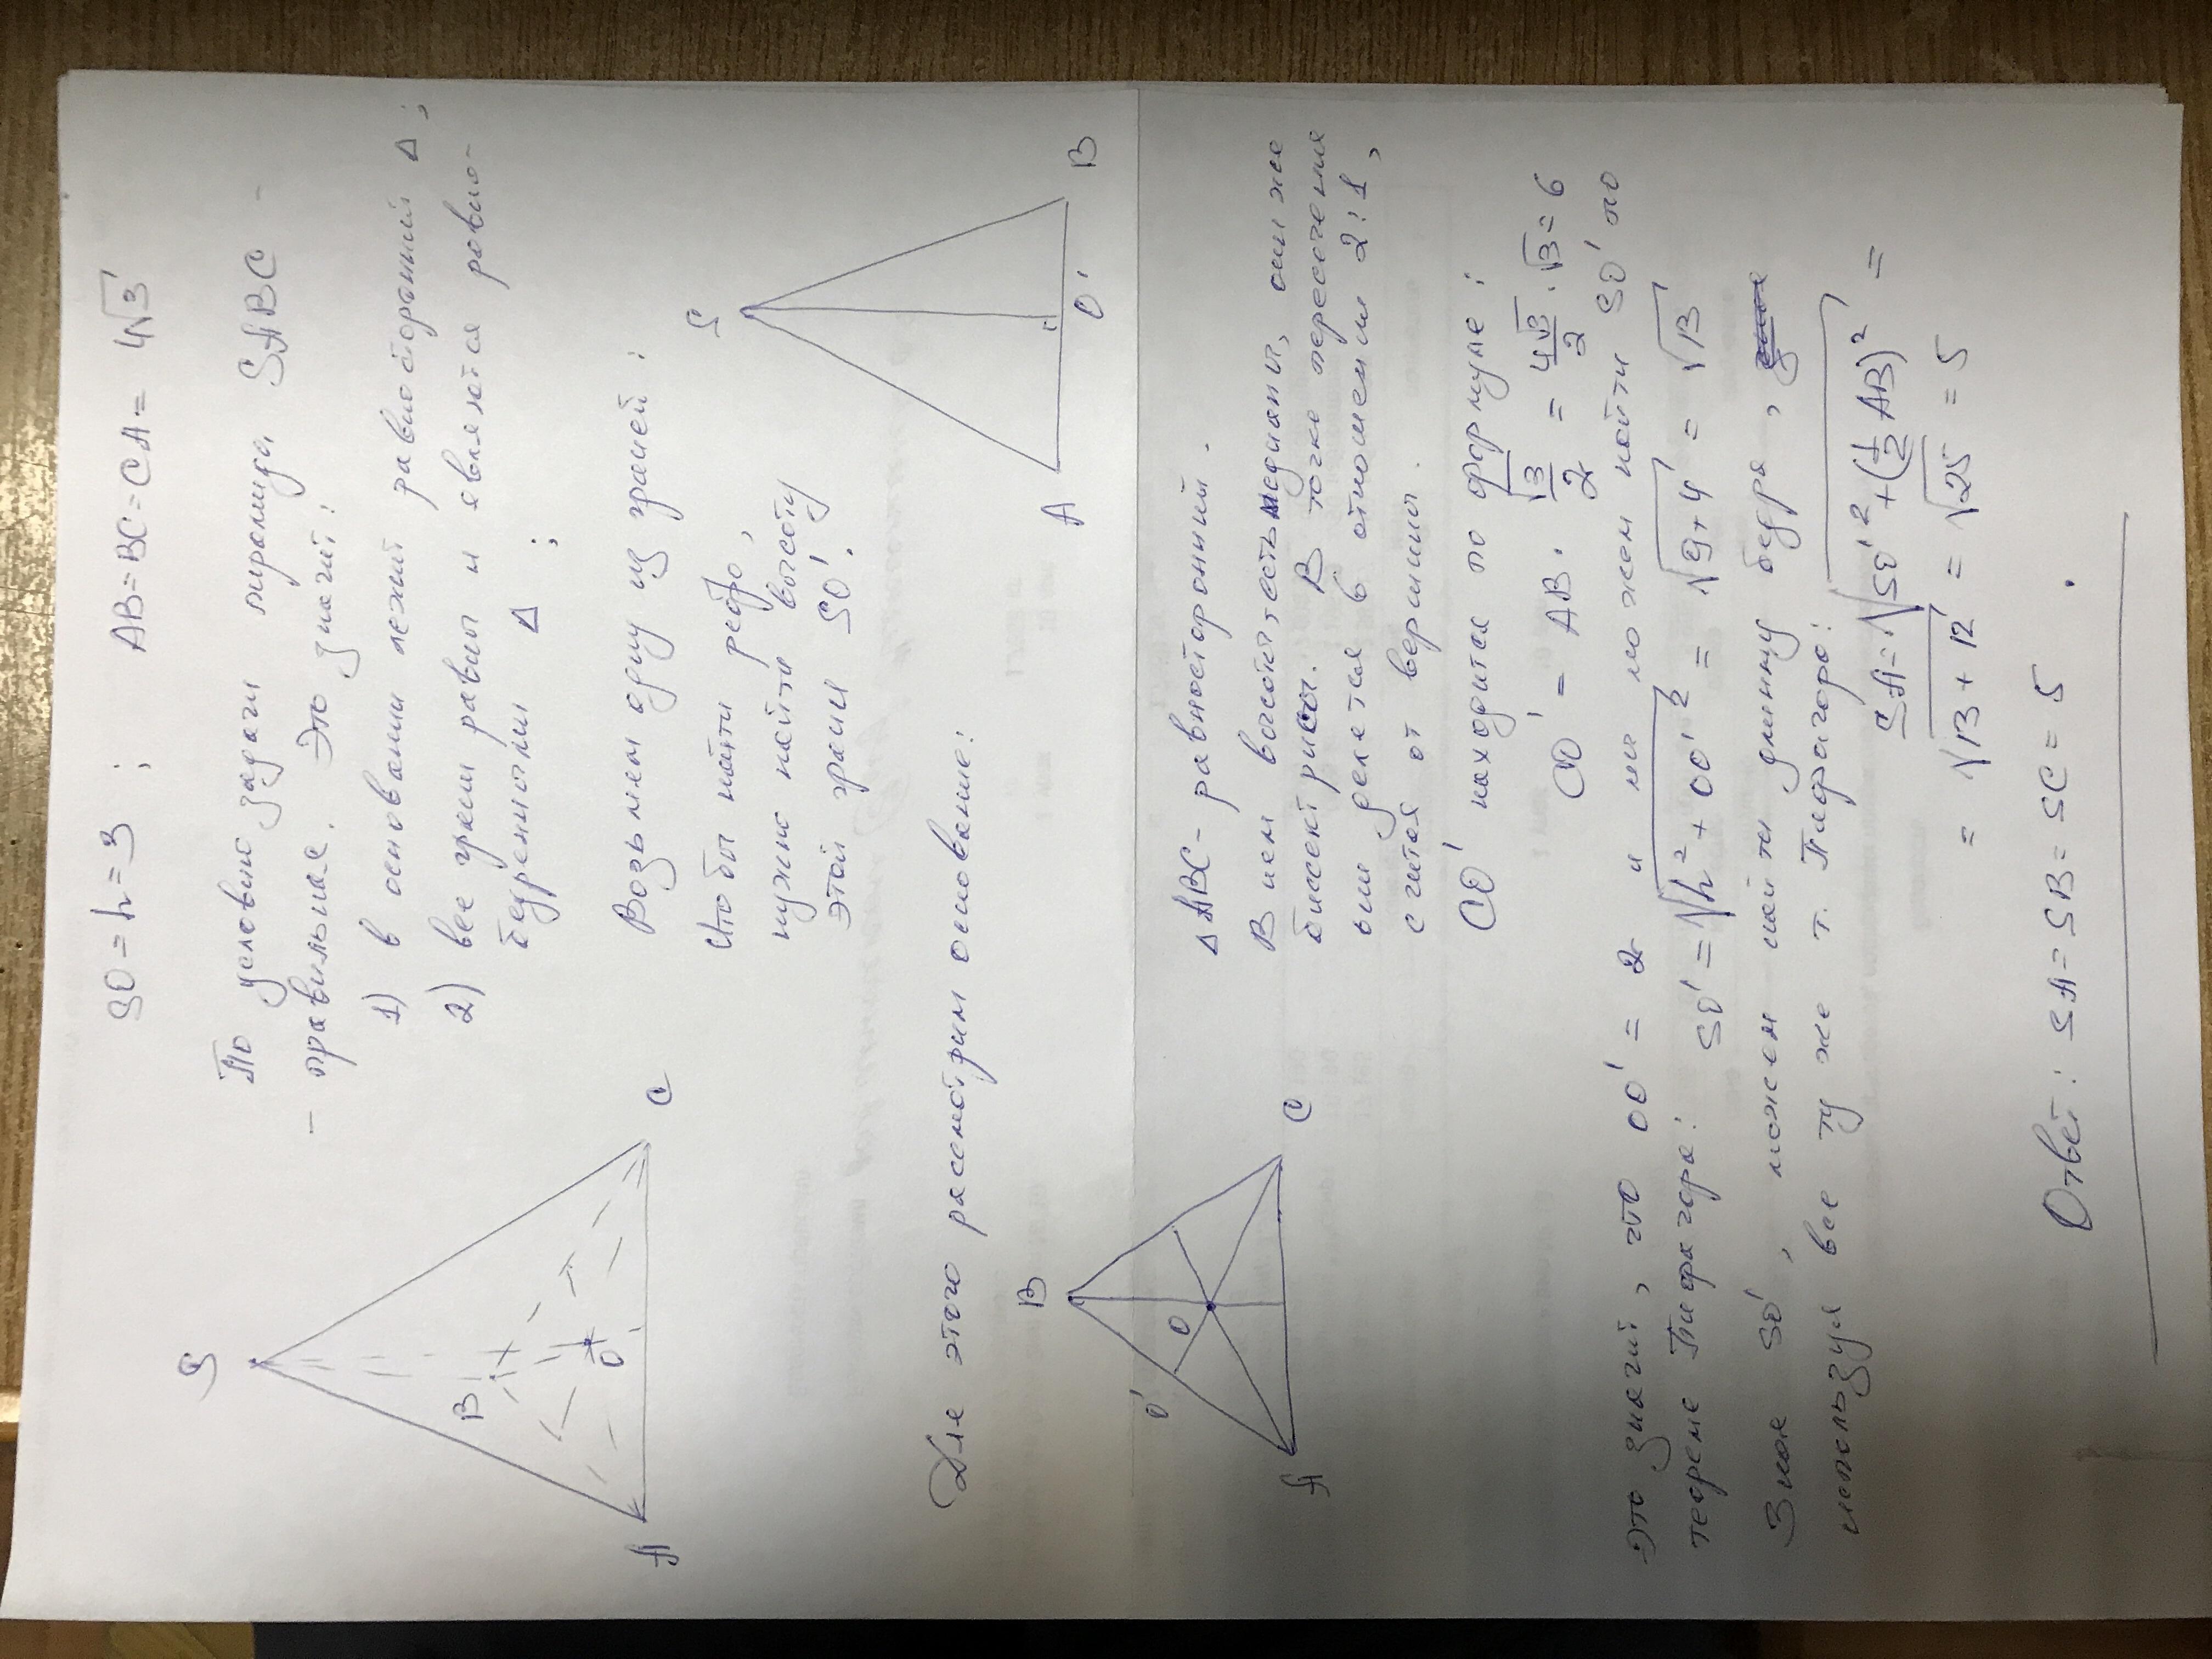 SO = h = 3 ; AB = BC = CA = 4√3
S
B
O
A
C
По условию задачи пирамида SABC -
- правильная. Это значит:
1) в основании лежит равносторонний Δ ;
2) все грани равны и являются равно-
бедренными Δ ;
Возьмем одну из граней :
Чтобы найти ребро,
нужно найти высоту
этой грани SO'.
S
A
O'
B
Для этого рассмотрим основание:
B
O'
O
A
C
Δ ABC - равносторонний.
В нем высоты, есть медианы, они же
биссектрисы. В точке пересечения
они делятся в отношении 2:1,
считая от вершины.
CO' находится по формуле :
CO' = AB · √3/2 = 4√3/2 · √3 = 6
Это значит, что OO' = 2 и мы можем найти SO' по
теореме Пифагора: SO' = √h² + OO'² = √9+4 = √13
Зная SO', можем найти длинну бедра,
используя все ту же т. Пифагора:
SA = √SO'² + (1/2 AB)² =
= √13 + 12 = √25 = 5
Ответ: SA = SB = SC = 5 .